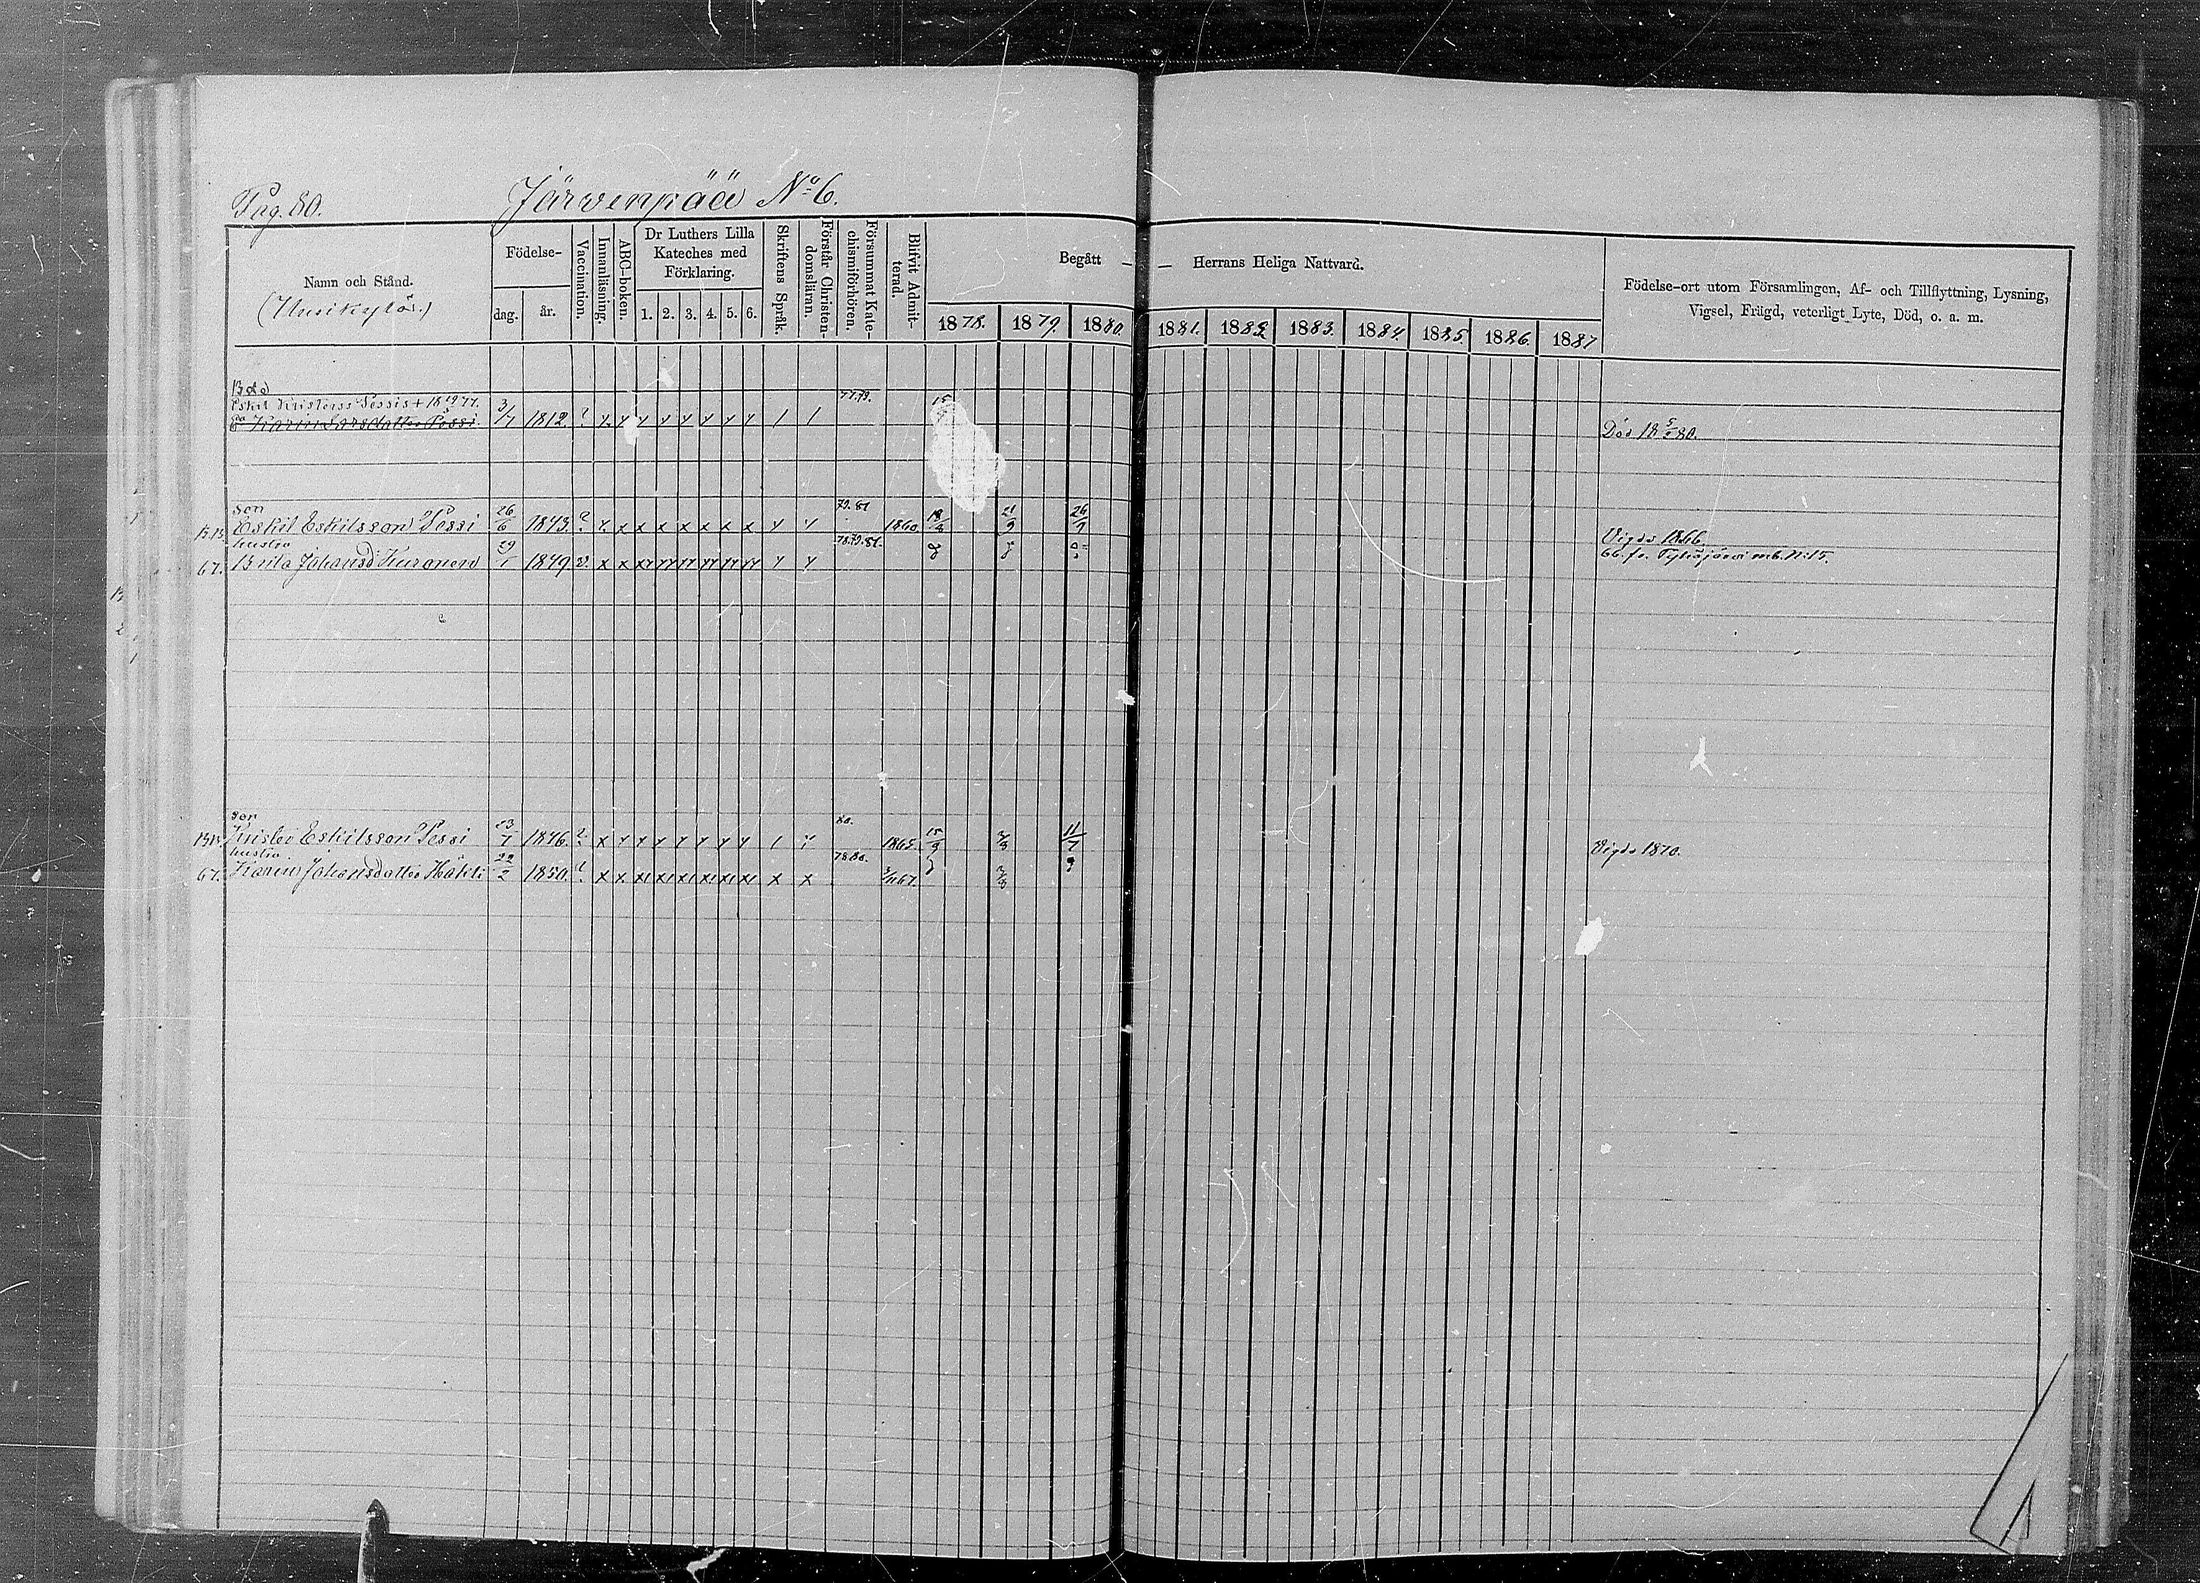 Pag. 80.
Järvenpää No 6.
Namn och Stånd.
(Uusikylä.)
Födelse-
dag. år.
Vaccination.
Innanläsning.
ABC-boken.
Dr Luthers Lilla Kateches med Förklaring.
1. 2. 3. 4. 5. 6.
Skriftens Språk.
Förstår Christen-domsläran.
Försummat Kate-chismiförhören.
Blifvit Admit-terad.
Begått — — Herrans Heliga Nattvard.
1878. 1879. 1880. 1881. 1882. 1883. 1884. 1885. 1886. 1887
Födelse-ort utom Församlingen, Af- och Tillflyttning, Lysning,
Vigsel, Frägd, veterligt Lyte, Död, o. a. m.
Bdd
Eskil Kristerss Pessis + 18 19 77. 77.79.
Karin Larsdotter Pessi. 3/7 1812 ? x x x x x x x x / / 15 Död 18 5/2 80.
son 79.81
Eskil Eskilsson Pessi 26/6 1843 ? x x x x x x x x y y 1860 18/8 21/9 26/9 Vigds 1866.
hustru 78.79.81.
67. Brita Johansd Kuronen 29/1 1849 v. x x x y y 66. fr. Tyhöjärvi mb. N:15.
son 80.
Krister Eskilsson Pessi 23/7 1846 ? x x x x x x x x / 1865. 15/9 3/8 11/7 Vigds 1870.
hustru. 78 80.
67. Karin Johansdotter Hähli 22/2 1850. ? x x x x 67. 3/8